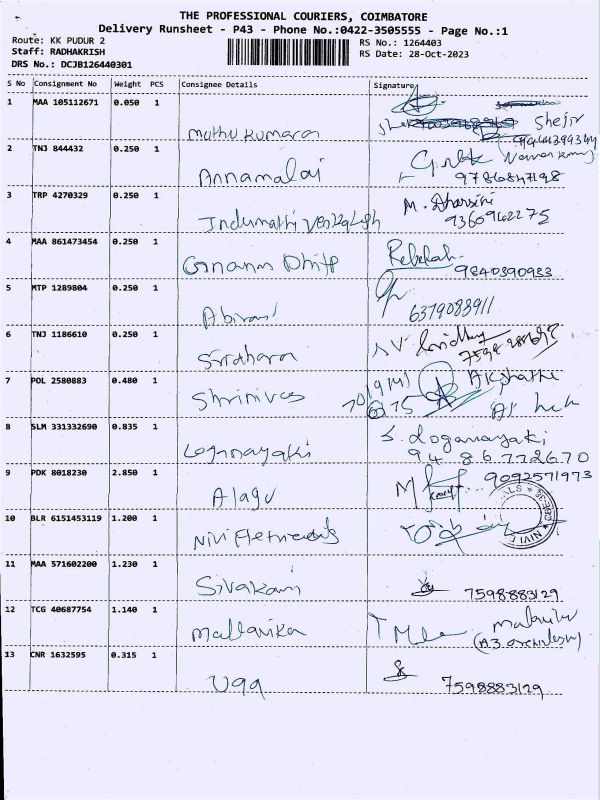 THE PROFESSIONAL COURIERS, COIMBATORE
Delivery Runsheet - P43 - Phone No.:0422-3505555 - Page No.:1
Route: KK PUDUR 2
RS No.: 1264403
Staff: RADHAKRISH
RS Date: 28-Oct-2023
DRS No.: DCJB126440301
S No Consignment No Weight PCS Consignee Details Signature
1 MAA 105112671 0.050 1
Muthu Kumara
2 TNJ 844432 0.250 1
Annamalai
9786847198
3 TRP 4270329 0.250 1 M. Dharsini
Indumathi Venkatesh 9360962275
4 MAA 861473454 0.250 1 Rebekah
9840390933
5 MTP 1289804 0.250 1
Abirami 6379083911
6 TNJ 1186610 0.250 1
Sridhara
7 POL 2580883 0.480 1 Akshatha
Shrinivas
8 SLM 331332690 0.835 1 S. Loganayaki
Loganayaki 9486772670
9 PDK 8018230 2.850 1 9092571973
Alagu
10 BLR 6151453119 1.200 1
Nivi
11 MAA 571602200 1.230 1
Sivakami 7598883129
12 TCG 40687754 1.140 1
Mallavika
13 CNR 1632595 0.315 1
7598883129